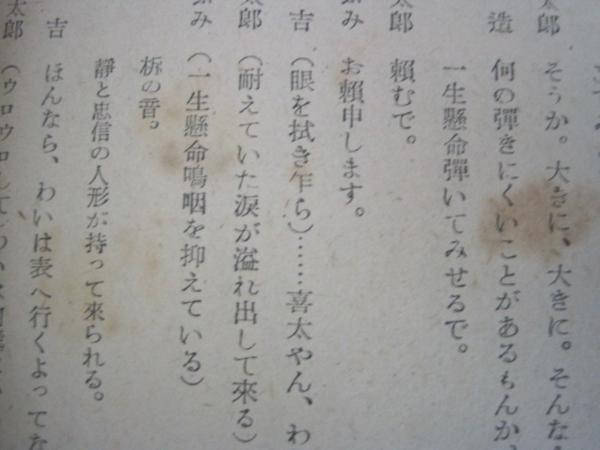 郎 そうか。大きに、大きに。そんな
造 何の彈きにくいことがあるもんか、
一生懸命彈いてみせるで。
太郎 賴むで。
み お賴申します。
吉 (眼を拭き乍ら)……喜太やん、わ
太郎 (耐えていた涙が溢れ出して來る)
み (一生懸命嗚咽を抑えている)
柝の音。
靜と忠信の人形が持って來られる。
吉 ほんなら、わいは表へ行くよってな
太郎 (ウロウロして